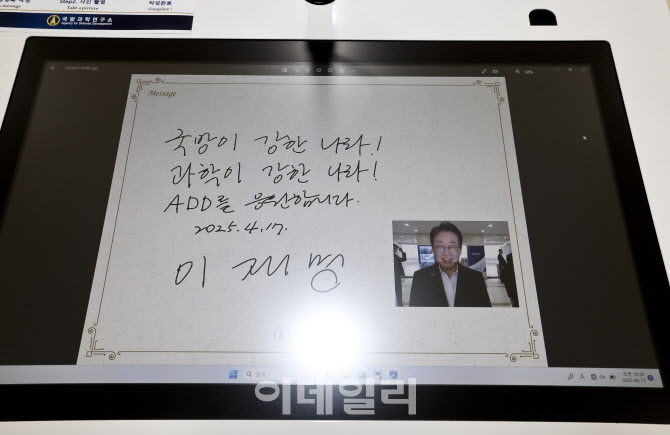 Step2. 사진 촬영
작성완료
Take a picture
Complete !
국방과학연구소
Agency for Defense Development
Message
국방이 강한 나라!
과학이 강한 나라!
ADD를 응원합니다.
2025.4.17.
이재명
검색
이데일리